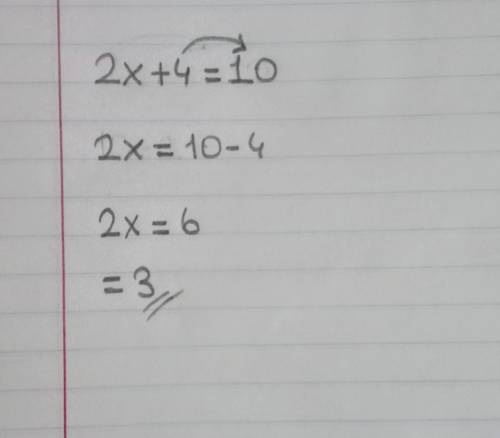 2x+4=10
2x=10-4
2x=6
=3